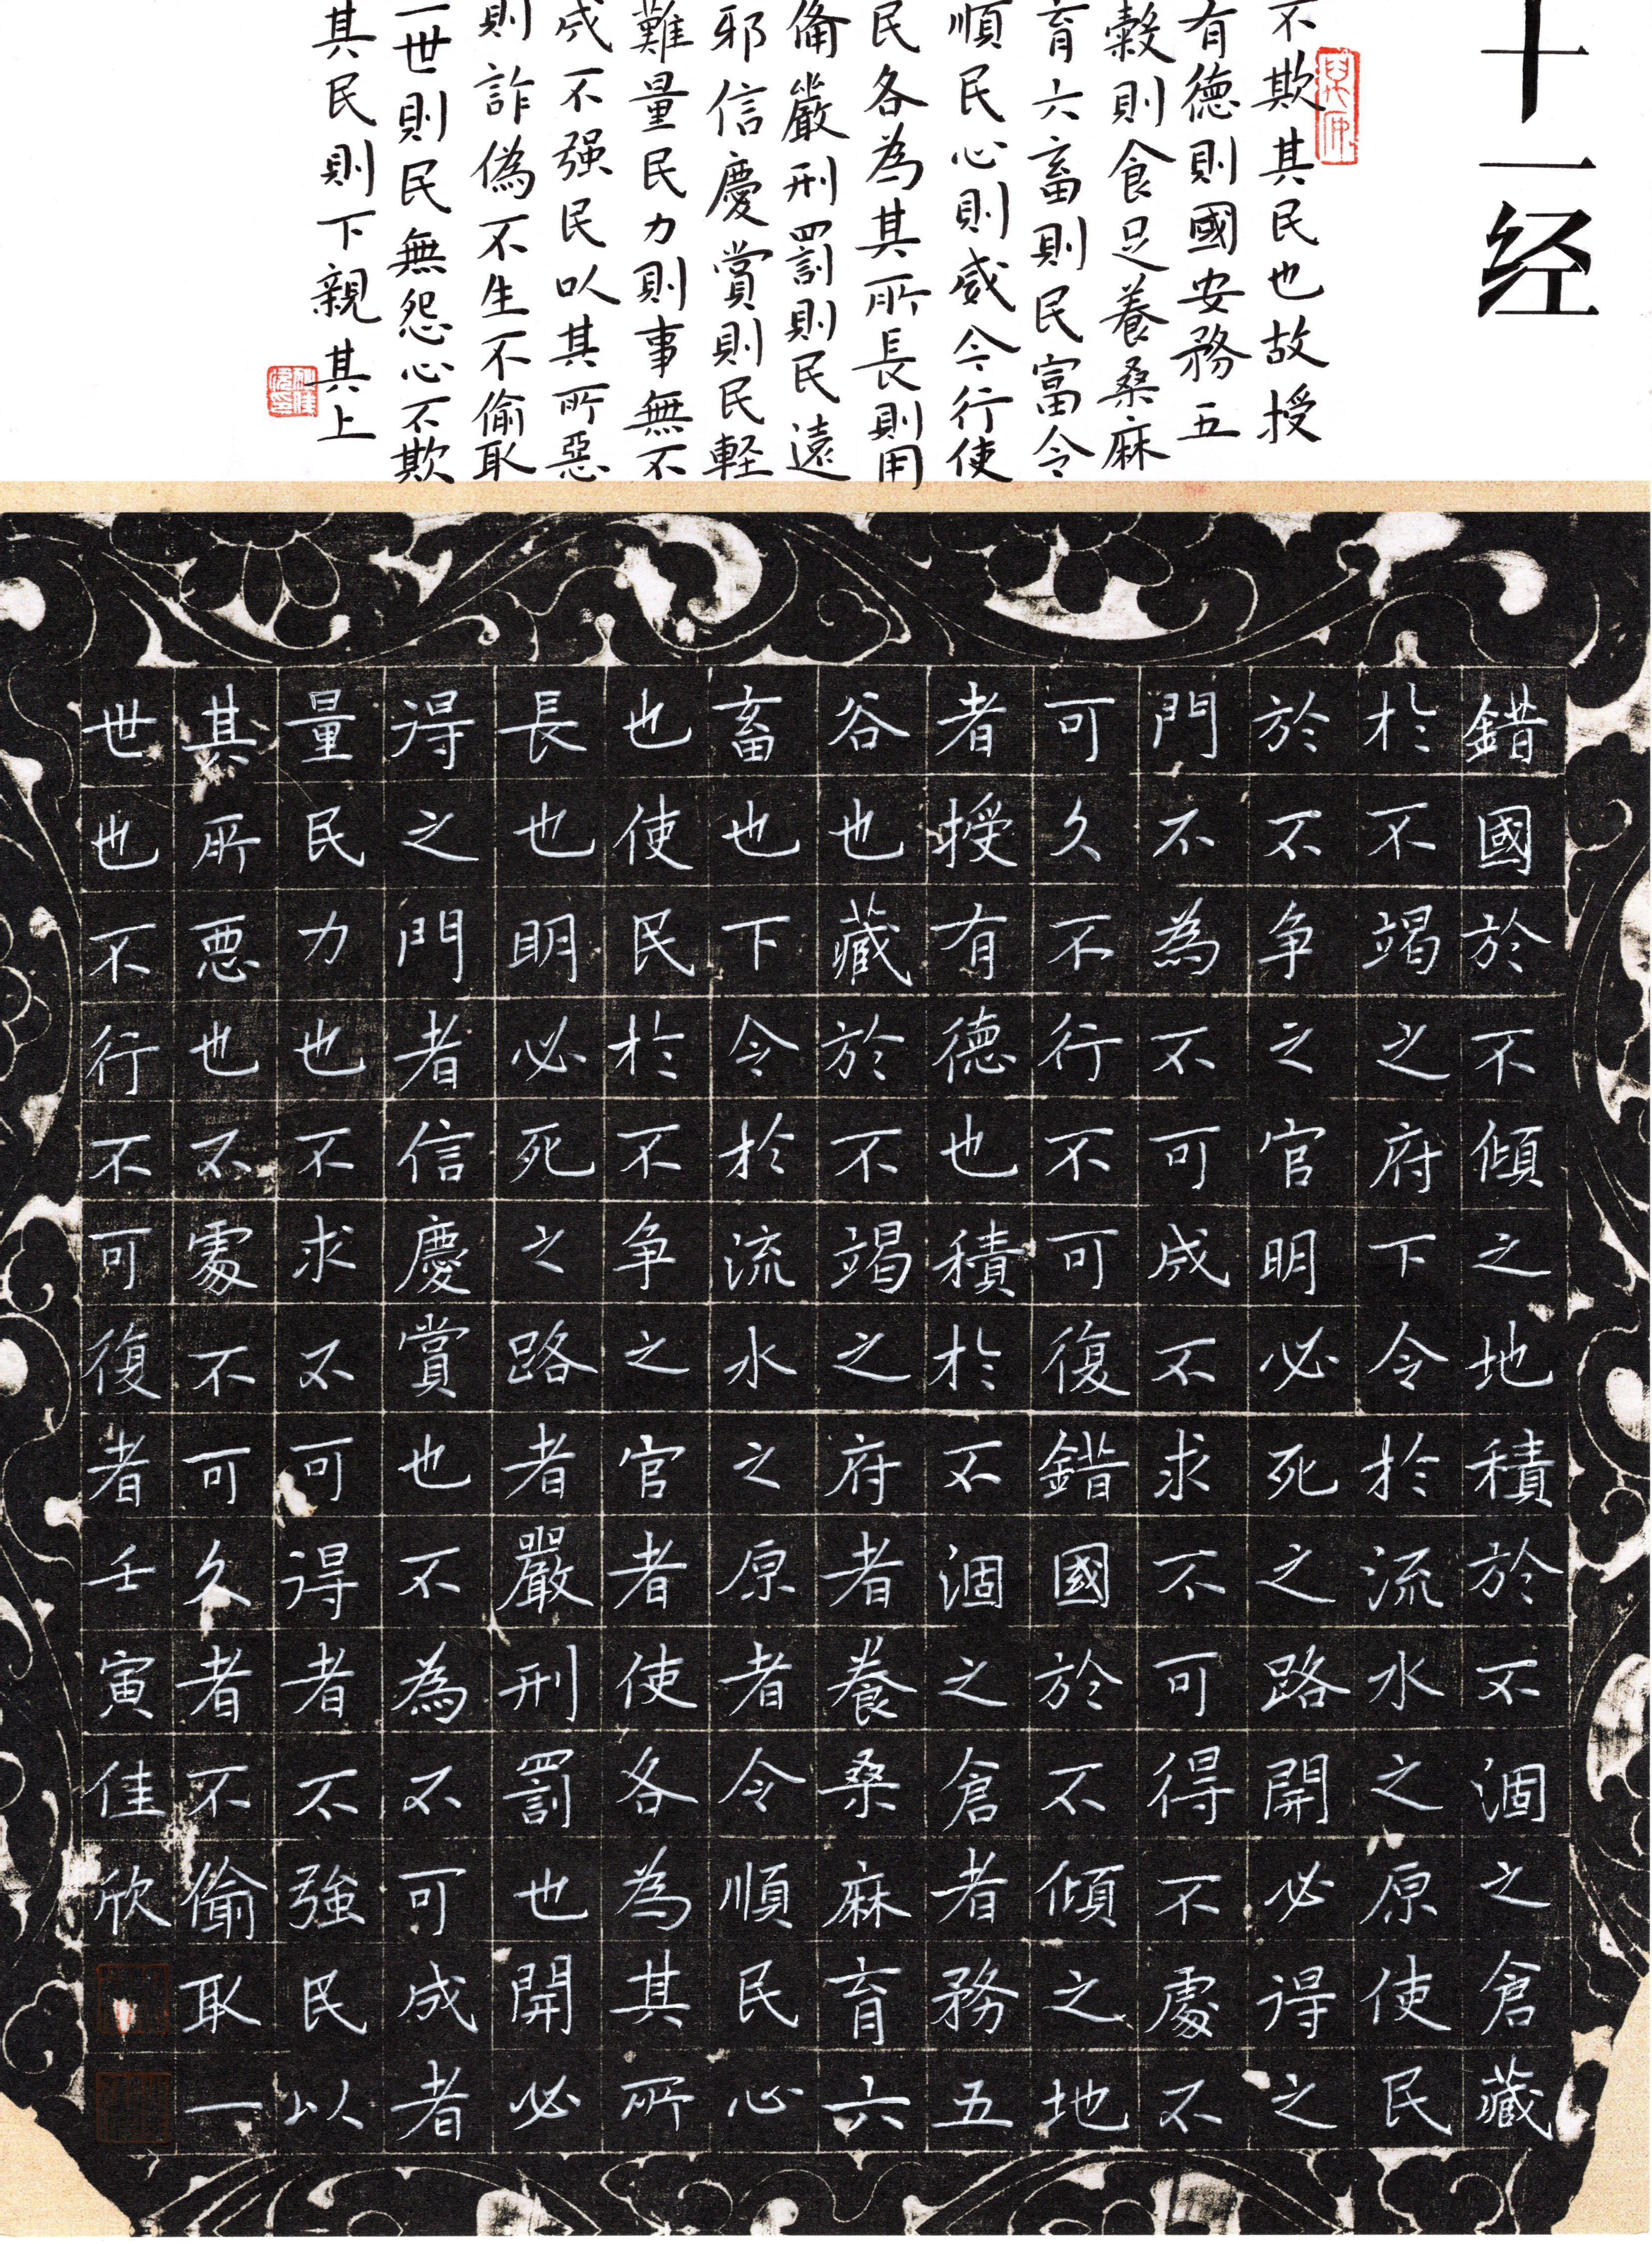 十一经
不欺其民也故授
有德則國安務五
穀則食足養桑麻
育六畜則民富令
順民心則威令行使
民各為其所長則用
備嚴刑罰則民遠
邪信慶賞則民軽
難量民力則事無不
成不强民以其所惡
則詐偽不生不偷取
一世則民無怨心不欺
其民則下親其上
錯國於不傾之地積於不涸之倉藏
於不竭之府下令於流水之原使民
於不争之官明必死之路開必得之
門不為不可成不求不可得不處不
可久不行不可復錯國於不傾之地
者授有德也積於不涸之倉者務五
谷也藏於不竭之府者養桑麻育六
畜也下令於流水之原者令順民心
也使民於不争之官者使各為其所
長也明必死之路者嚴刑罰也開必
得之門者信慶賞也不為不可成者
量民力也不求不可得者不強民以
其所悪也不處不可久者不偷取一
世也不行不可復者壬寅佳欣